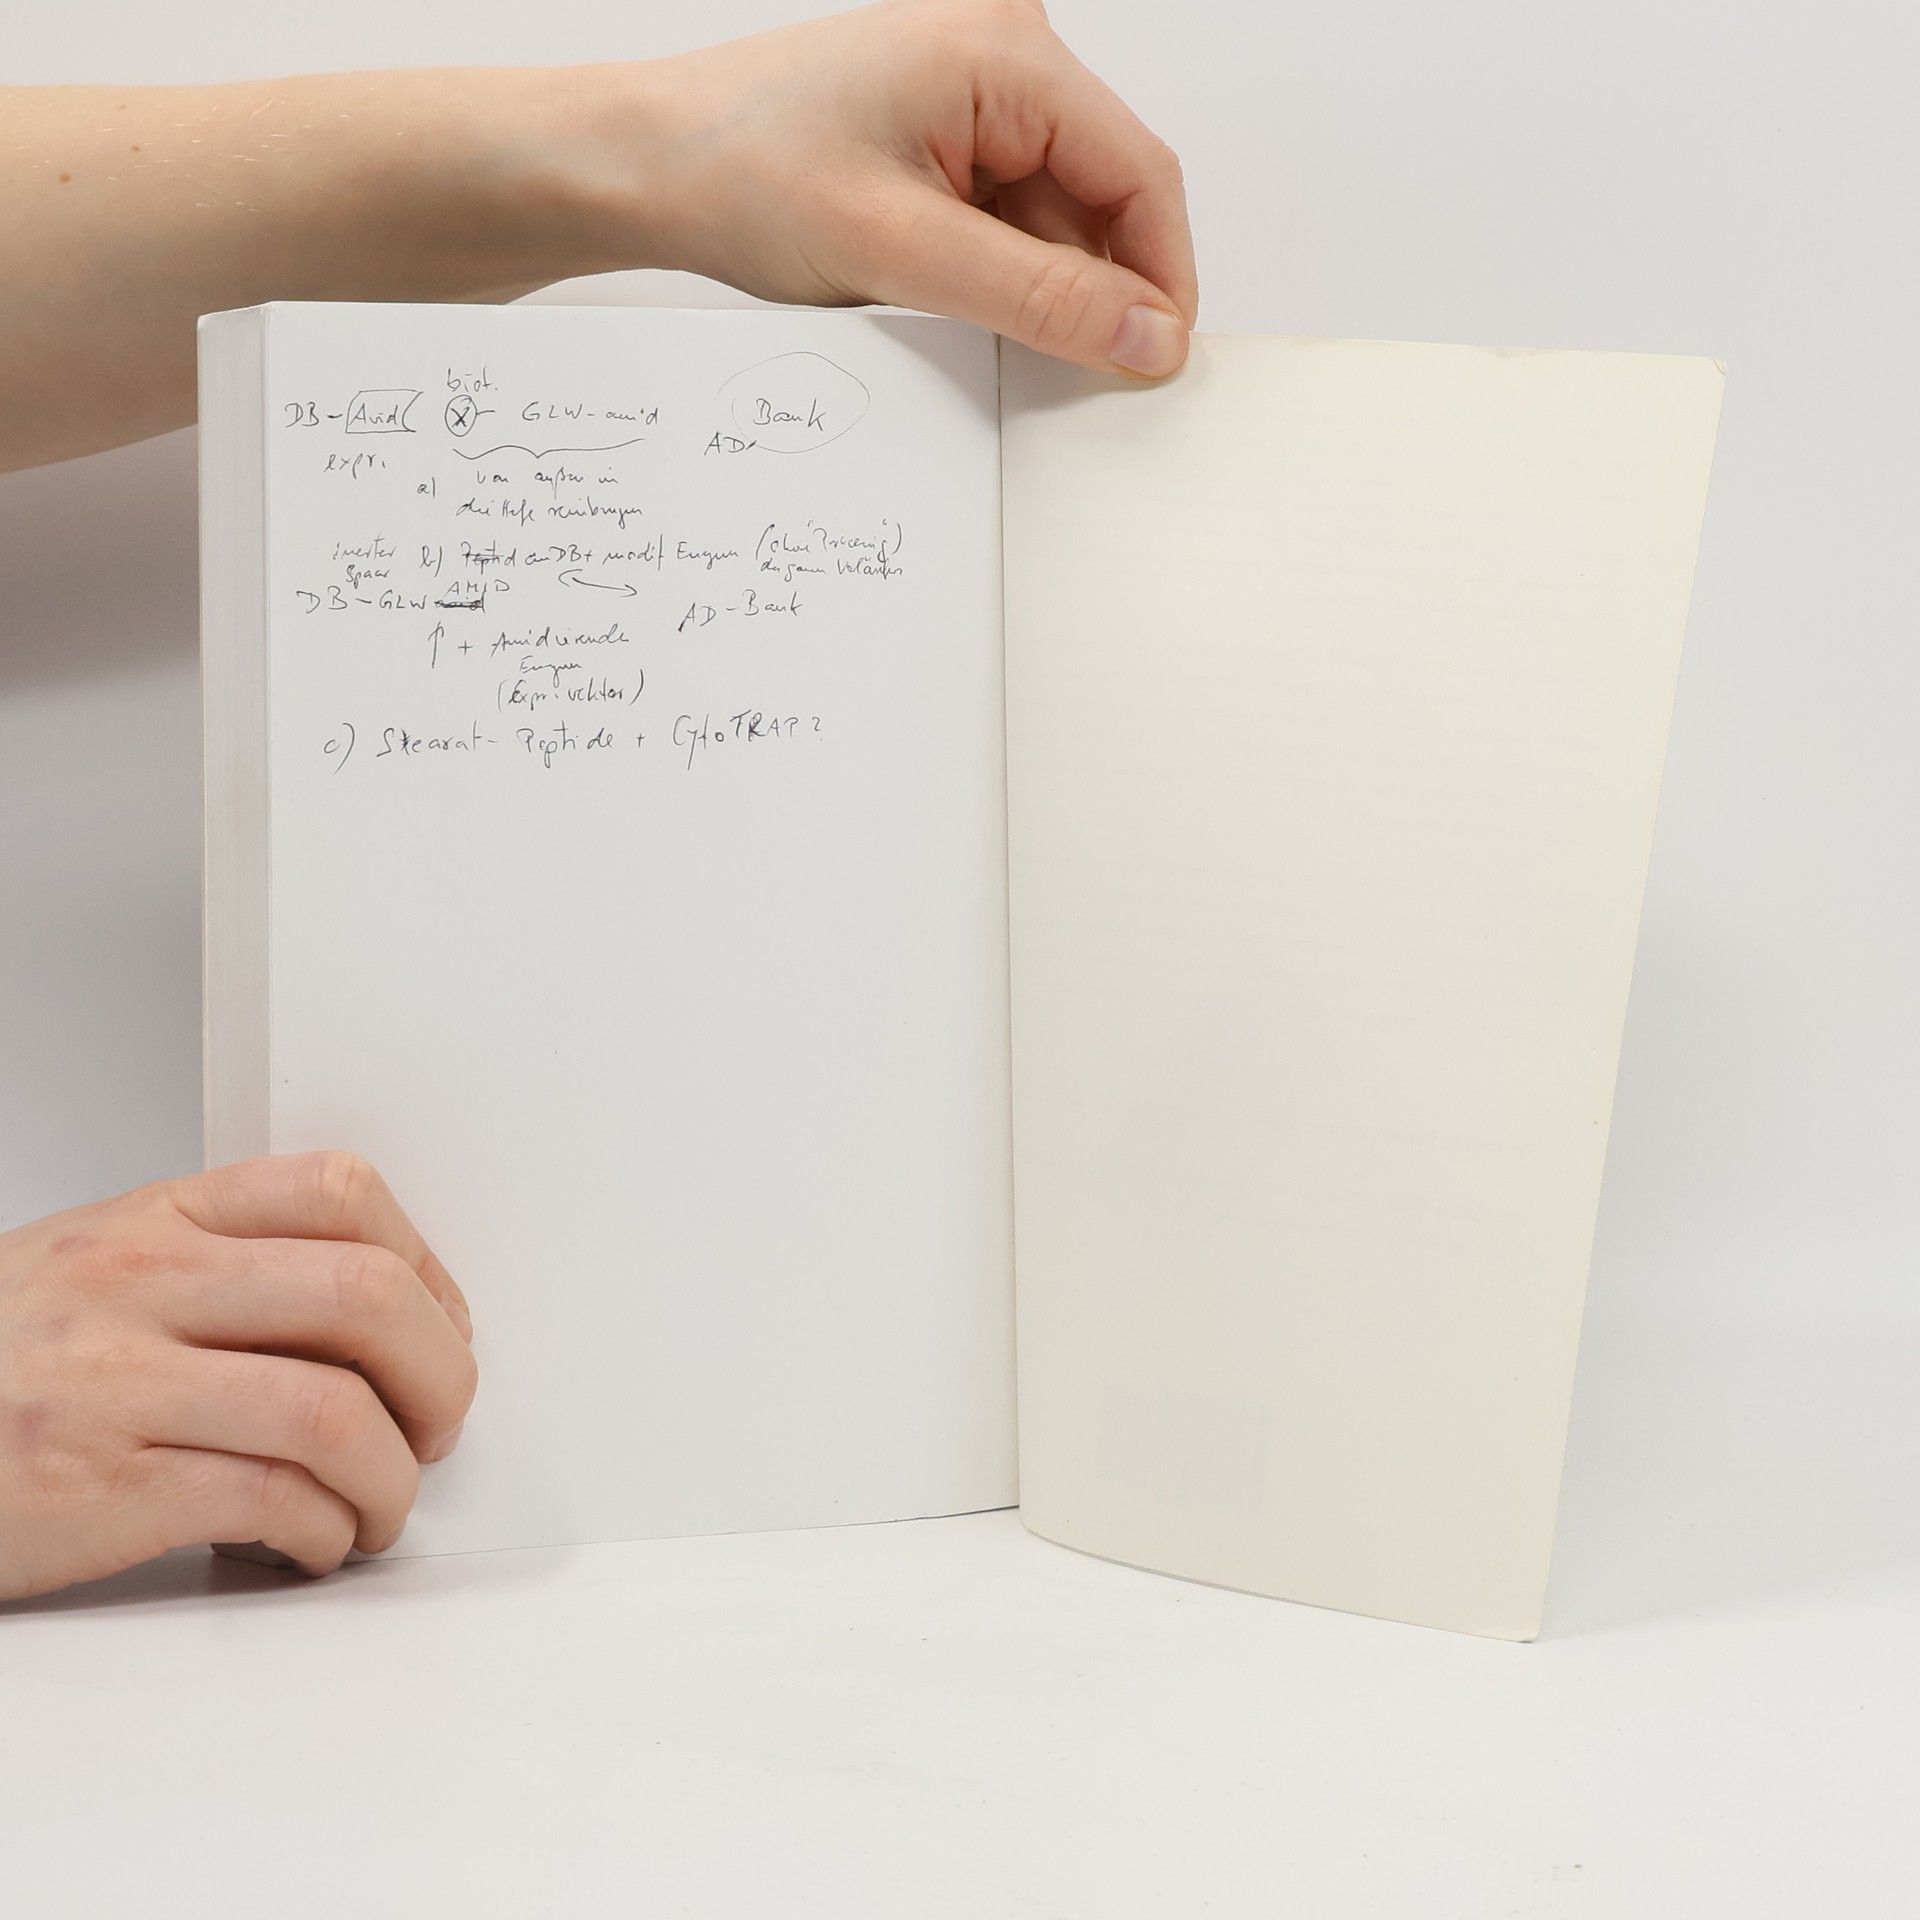 biot.
DB - Avid X - GLW-amid Bank
AD
expr.
a) von außen in
die Hefe reinbringen
inerter b) Peptid an DB + modif Enzym (ohne "Processing")
DB - GLW AMID
AD - Bank
+ Amidierendes
Enzym
(Expr. vektor)
c) Stearat - Peptide + CytoTRAP?